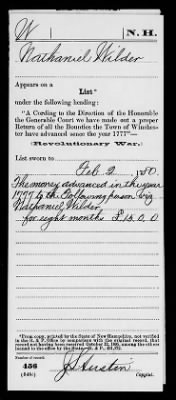 W | N. H.
Nathaniel Wilder
Appears on a
List*
under the following heading:
"A Cording to the Direction of the Honorable
the Generale Court we have made out a proper
Return of all the Bounties the Town of Winches-
ter have advanced sence the year 1777"
(Revolutionary War.)
List sworn to Feb 2, 1780.
The money advanced in the year
1777 to the Following person viz
Nathaniel Wilder
for eight months £15, 0, 0
*From copy, printed by the State of New Hampshire, not verified
in the R. & P. Office by comparison with the original record, that
Number of record.
456
(545c)
Copyist.